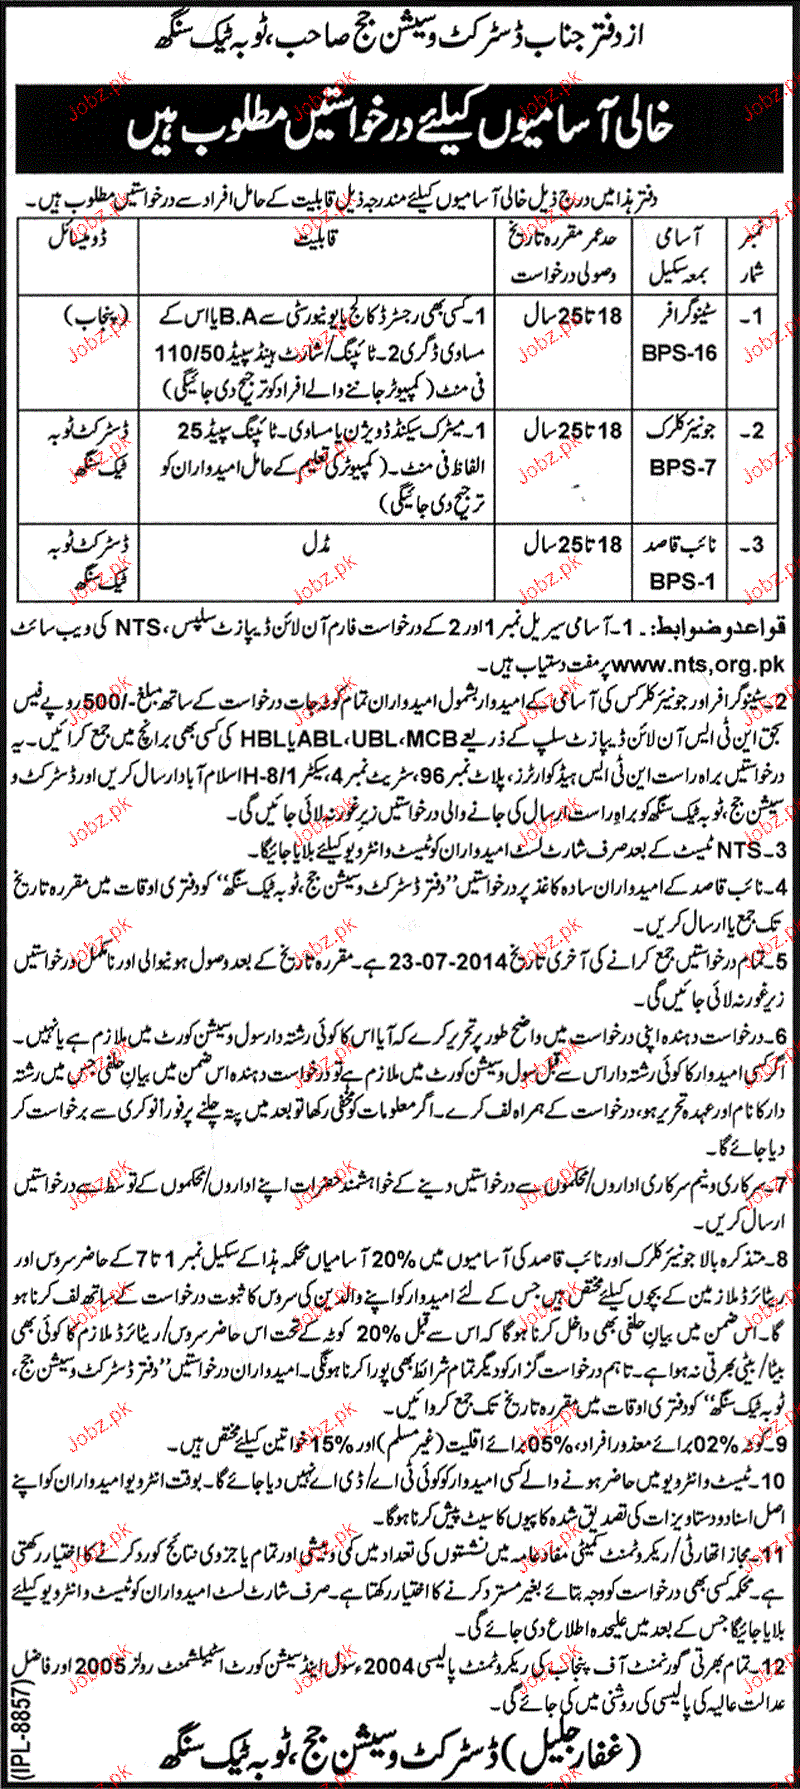 از دفتر جناب ڈسٹرکٹ وسیشن جج صاحب، ٹوبہ ٹیک سنگھ
خالی آسامیوں کیلئے درخواستیں مطلوب ہیں
دفتر ہذا میں درج ذیل خالی آسامیوں کیلئے مندرجہ ذیل قابلیت کے حامل افراد سے درخواستیں مطلوب ہیں۔
نمبر شمار
آسامی بمعہ سکیل
حد عمر مقررہ تاریخ وصولی درخواست
قابلیت
ڈومیسائل
1۔
سٹینوگرافر
BPS-16
18 تا 25 سال
1۔کسی بھی رجسٹرڈ کالج یا یونیورسٹی سے B.A یا اس کے
مساوی ڈگری 2۔ٹائپنگ/شارٹ ہینڈ سپیڈ 110/50
فی منٹ (کمپیوٹر جاننے والے افراد کو ترجیح دی جائیگی)
(پنجاب)
2۔
جونیئر کلرک
BPS-7
18 تا 25 سال
1۔میٹرک سیکنڈ ڈویژن یا مساوی۔ ٹائپنگ سپیڈ 25
الفاظ فی منٹ۔ (کمپیوٹر کی تعلیم کے حامل امیدواران کو
ترجیح دی جائیگی)
ڈسٹرکٹ ٹوبہ
ٹیک سنگھ
3۔
نائب قاصد
BPS-1
18 تا 25 سال
مڈل
ڈسٹرکٹ ٹوبہ
ٹیک سنگھ
قواعد وضوابط:۔ 1۔آسامی سیریل نمبر 1 اور 2 کے درخواست فارم آن لائن ڈیپازٹ سلپس، NTS کی ویب سائٹ
www.nts,org.pk پر مفت دستیاب ہیں۔
2۔سٹینوگرافر اور جونیئر کلرکس کی آسامی کے امیدوار بشمول امیدواران تمام کوٹہ جات درخواست کے ساتھ مبلغ -/500 روپے فیس
بحق این ٹی ایس آن لائن ڈیپازٹ سلپ کے ذریعے ABL،UBL،MCB یا HBL کی کسی بھی برانچ میں جمع کرائیں۔ یہ
درخواستیں براہ راست این ٹی ایس ہیڈ کوارٹرز، پلاٹ نمبر 96، سٹریٹ نمبر 4، سیکٹر H-8/1 اسلام آباد ارسال کریں اور ڈسٹرکٹ و
سیشن جج، ٹوبہ ٹیک سنگھ کو براہ راست ارسال کی جانے والی درخواستیں زیر غور نہ لائی جائیں گی۔
3۔NTS ٹیسٹ کے بعد صرف شارٹ لسٹ امیدواران کو ٹیسٹ وانٹرویو کیلئے بلایا جائیگا۔
4۔نائب قاصد کے امیدواران سادہ کاغذ پر درخواستیں "دفتر ڈسٹرکٹ وسیشن جج، ٹوبہ ٹیک سنگھ" کو دفتری اوقات میں مقررہ تاریخ
تک جمع یا ارسال کریں۔
5۔تمام درخواستیں جمع کرانے کی آخری تاریخ 23-07-2014 ہے۔ مقررہ تاریخ کے بعد وصول ہونیوالی اور نامکمل درخواستیں
زیر غور نہ لائی جائیں گی۔
6۔درخواست دہندہ اپنی درخواست میں واضح طور پر تحریر کرے کہ آیا اس کا کوئی رشتہ دار سول وسیشن کورٹ میں ملازم ہے یا نہیں۔
اگر کسی امیدوار کا کوئی رشتہ دار اس سے قبل سول وسیشن کورٹ میں ملازم ہے تو درخواست دہندہ اس ضمن میں بیان حلفی جس میں رشتہ
دار کا نام اور عہدہ تحریر ہو، درخواست کے ہمراہ لف کرے۔ اگر معلومات کو مخفی رکھا تو بعد میں پتہ چلنے پر فوراً نوکری سے برخواست کر
دیا جائے گا۔
7۔سرکاری ونیم سرکاری اداروں/محکموں سے درخواستیں دینے کے خواہشمند حضرات اپنے اداروں/محکموں کے توسط سے درخواستیں
ارسال کریں۔
8۔متذکرہ بالا جونیئر کلرک اور نائب قاصد کی آسامیوں میں 20% آسامیاں محکمہ ہذا کے سکیل نمبر 1 تا 7 کے حاضر سروس اور
ریٹائرڈ ملازمین کے بچوں کیلئے مختص ہیں جس کے لئے امیدوار کو اپنے والدین کی سروس کا ثبوت درخواست کے ساتھ لف کرنا ہو
گا۔ اس ضمن میں بیان حلفی بھی داخل کرنا ہوگا کہ اس سے قبل 20% کوٹہ کے تحت اس حاضر سروس/ریٹائرڈ ملازم کا کوئی بھی
بیٹا/بیٹی بھرتی نہ ہوا ہے۔ تاہم درخواست گزار کو دیگر تمام شرائط بھی پورا کرنا ہونگی۔ امیدواران درخواستیں "دفتر ڈسٹرکٹ وسیشن جج،
ٹوبہ ٹیک سنگھ" کو دفتری اوقات میں مقررہ تاریخ تک جمع کروائیں۔
9۔کوٹہ 02% برائے معذور افراد، 05% برائے اقلیت (غیر مسلم) اور 15% خواتین کیلئے مختص ہیں۔
10۔ٹیسٹ وانٹرویو میں حاضر ہونے والے کسی امیدوار کو کوئی ٹی اے/ڈی اے نہیں دیا جائے گا۔ بوقت انٹرویو امیدواران کو اپنے
اصل اسناد ودستاویزات کی تصدیق شدہ کاپیوں کا سیٹ پیش کرنا ہوگا۔
11۔مجاز اتھارٹی/ریکروٹمنٹ کمیٹی مفاد عامہ میں نشستوں کی تعداد میں کمی وبیشی اور تمام یا جزوی نتائج کو رد کرنے کا اختیار رکھتی
ہے۔ محکمہ کسی بھی درخواست کو وجہ بتائے بغیر مسترد کرنے کا اختیار رکھتا ہے۔ صرف شارٹ لسٹ امیدواران کو ٹیسٹ وانٹرویو کیلئے
بلایا جائیگا جس کے بعد میں علیحدہ اطلاع دی جائے گی۔
12۔تمام بھرتی گورنمنٹ آف پنجاب کی ریکروٹمنٹ پالیسی 2004ء سول اینڈ سیشن کورٹ اسٹیبلشمنٹ رولز 2005 اور فاضل
عدالت عالیہ کی پالیسی کی روشنی میں کی جائے گی۔
(غفار جلیل) ڈسٹرکٹ وسیشن جج، ٹوبہ ٹیک سنگھ
(IPL-8857)
Jobz.pk